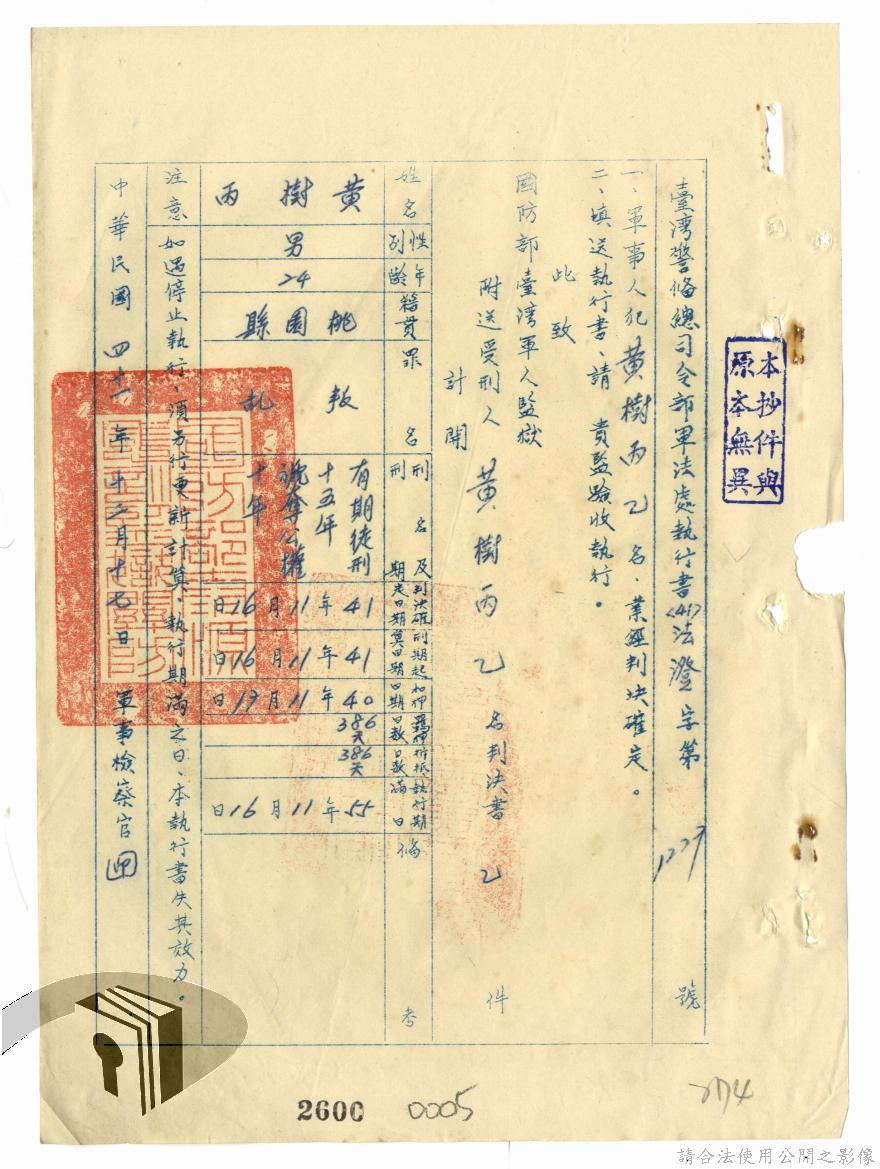 臺湾警俻總司令部軍法處執行書(41)法澄字第1227號
一、軍事人犯黃樹丙乙名、業經判决確定。
二、填送執行書、請貴監驗收執行。
此致
國防部臺湾軍人監獄
附送受刑人黃樹丙乙名判决書乙件
計開
姓名
性別
年齡
籍貫
罪名
刑名及刑期
判决確定日期
刑期起算日期
扣押日期
羈押日数
折抵日数
執行期滿日
俻考
黃樹丙
男
24
桃園縣
叛乱
有期徒刑
十五年
褫奪公權
十年
41年11月16日
41年11月16日
40年11月19日
386天
386天
55年11月16日
注意 如遇停止執行、須另行更新計算、執行期滿之日、本執行書失其效力。
中華民國四十一年十二月十七日 軍事檢察官
本抄件與
原本無異
2600
0005
請合法使用公開之影像